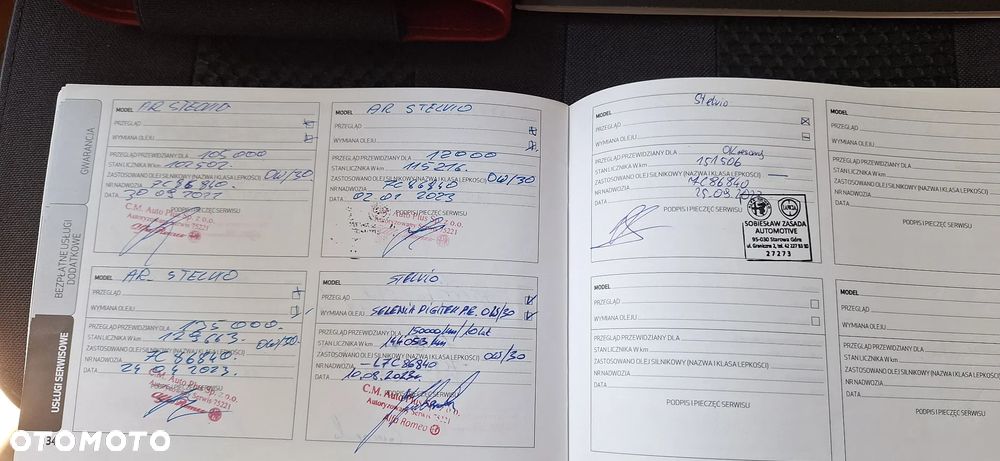 GWARANCJA
BEZPŁATNE USŁUGI DODATKOWE
USŁUGI SERWISOWE
MODEL AR STELVIO
PRZEGLĄD
WYMIANA OLEJU
PRZEGLĄD PRZEWIDZIANY DLA 105 000
STAN LICZNIKA W km
ZASTOSOWANO OLEJ SILNIKOWY (NAZWA I KLASA LEPKOŚCI) 0W/30
NR NADWOZIA 7C86840
DATA
PODPIS I PIECZĘĆ SERWISU
C.M. Auto Plus Sp. z o.o.
Autoryzowany Serwis 75221
MODEL AR STELVIO
PRZEGLĄD
WYMIANA OLEJU
PRZEGLĄD PRZEWIDZIANY DLA 12000
STAN LICZNIKA W km 115276.
ZASTOSOWANO OLEJ SILNIKOWY (NAZWA I KLASA LEPKOŚCI) 0W/30
NR NADWOZIA 7C86840
DATA 02 01 2023
PIECZĘĆ SERWISU
Auto Plus
MODEL AR STELVIO
PRZEGLĄD
WYMIANA OLEJU
PRZEGLĄD PRZEWIDZIANY DLA 135 000.
STAN LICZNIKA W km 129663.
ZASTOSOWANO OLEJ SILNIKOWY (NAZWA I KLASA LEPKOŚCI) 0W/30
NR NADWOZIA 7C86840
DATA 24 04 2023.
C.M. Auto Plus Sp. z o.o.
Serwis 75221
MODEL Stelvio
PRZEGLĄD
WYMIANA OLEJU SELENIA DIGITEK P.E. 0W/30
PRZEGLĄD PRZEWIDZIANY DLA 150000km
STAN LICZNIKA W km
ZASTOSOWANO OLEJ SILNIKOWY (NAZWA I KLASA LEPKOŚCI) 0W/30
NR NADWOZIA L7C86840
DATA 10.08.2023r.
C.M. Auto Plus
Autoryzowany Serwis
Alfa Romeo
MODEL Stelvio
PRZEGLĄD
WYMIANA OLEJU
PRZEGLĄD PRZEWIDZIANY DLA Okresowy
STAN LICZNIKA W km 151506
ZASTOSOWANO OLEJ SILNIKOWY (NAZWA I KLASA LEPKOŚCI) —
NR NADWOZIA 7C86840
DATA 25.09.2023
PODPIS I PIECZĘĆ SERWISU
LANCIA
SOBIESŁAW ZASADA
AUTOMOTIVE
95-030 Starowa Góra
ul. Graniczna 2, tel. 42 227 93 80
27273
MODEL
PRZEGLĄD
WYMIANA OLEJU
PRZEGLĄD PRZEWIDZIANY DLA
STAN LICZNIKA W km
ZASTOSOWANO OLEJ SILNIKOWY (NAZWA I KLASA LEPKOŚCI)
NR NADWOZIA
DATA
PODPIS I PIECZĘĆ SERWISU
MODEL
PRZEGLĄD
WYMIANA OLEJU
PRZEGLĄD PRZEWIDZIANY DLA
STAN LICZNIKA W km
ZASTOSOWANO OLEJ SILNIKOWY (NAZWA I KLASA
NR NADWOZIA
DATA
PODPIS I PIECZĘĆ SERWISU
MODEL
PRZEGLĄD
WYMIANA OLEJU
PRZEGLĄD PRZEWIDZIANY DLA
STAN LICZNIKA W km
ZASTOSOWANO OLEJ SILNIKOWY (NAZWA I KLASA
NR NADWOZIA
DATA
PODPIS I PIECZĘĆ SERWISU
34
OTOMOTO